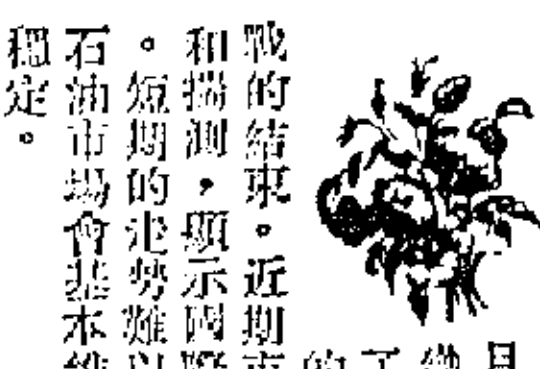 的
了
戰的結束。近期市
和揣測，顯示國際
。短期的走勢難以
石油市場會基本維
穩定。